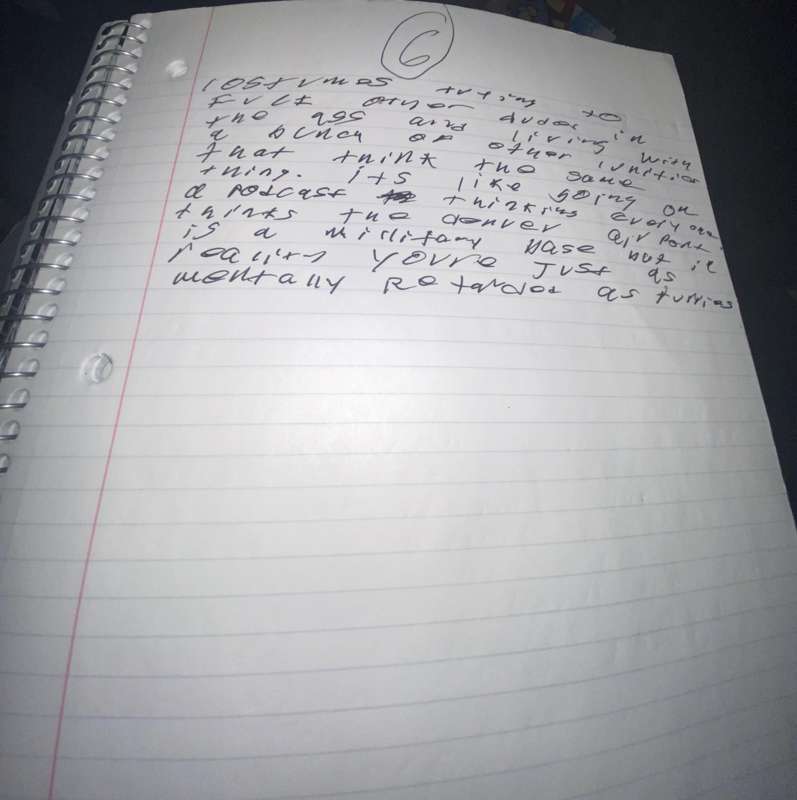 6
costumes trying to
fuck other dudes in
the ass and living with
a bunch of other lunitics
that think the same
thing. Its like going on
a podcast thinking everyone
thinks the denver airport
is a military base but in
reality youre just as
mentally Retarded as furries